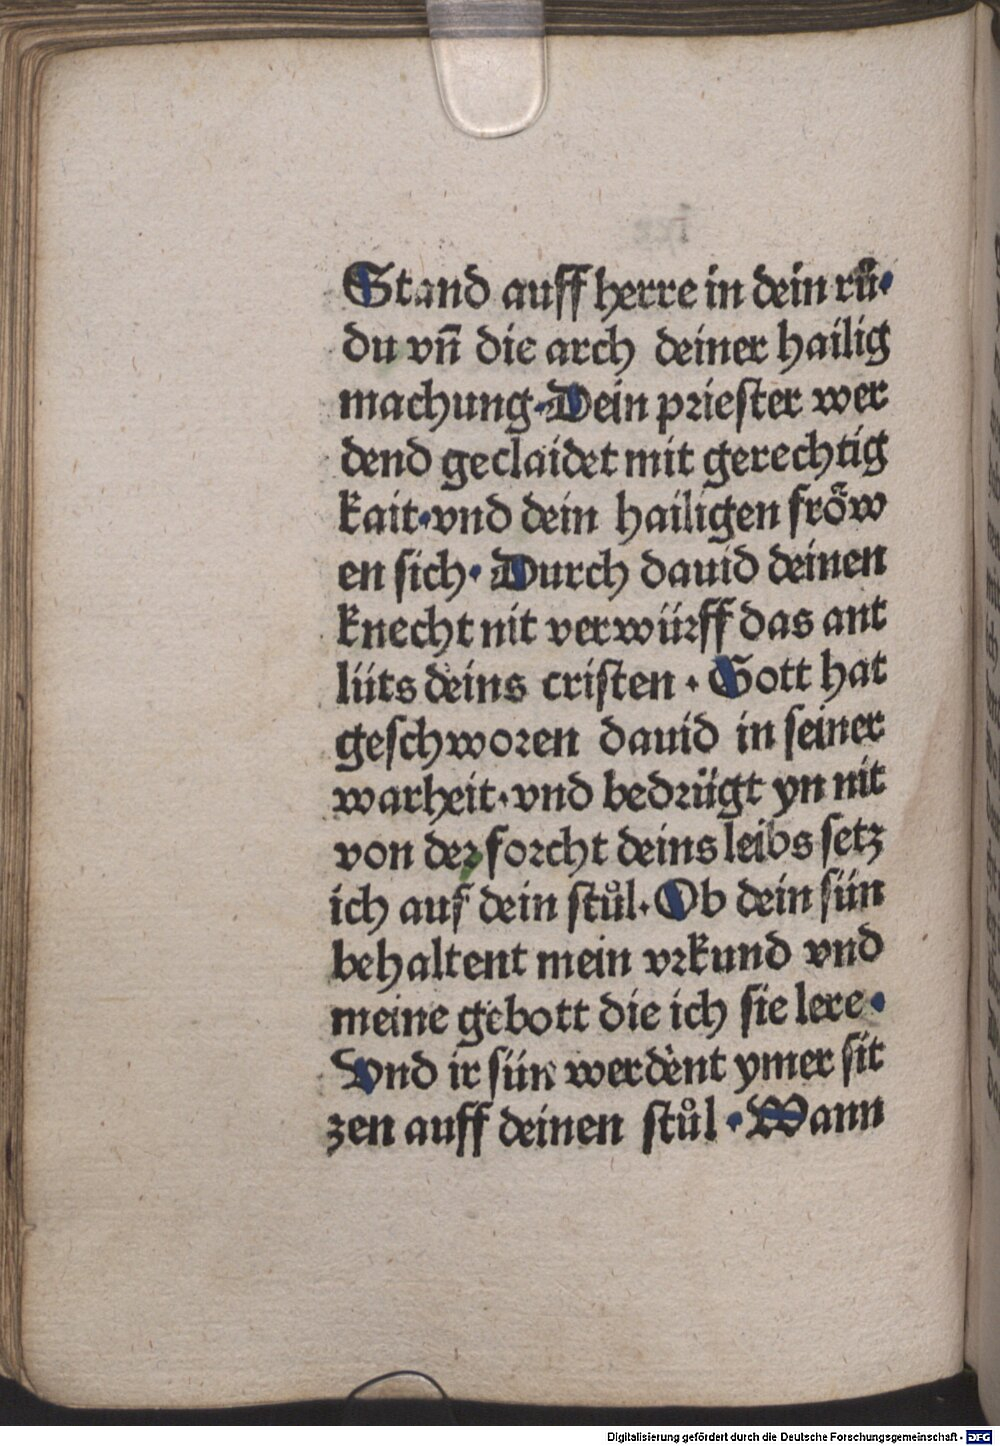 Stand auff herre in dein rů·
du vn̄ die arch deiner hailig
machung·Dein priester wer
dend geclaidet mit gerechtig
kait·vnd dein hailigen fröw
en sich· Durch dauid deinen
knecht nit verwürff das ant
lüts deins cristen · Gott hat
geschworen dauid in seiner
warheit·vnd bedrügt yn nit
von der forcht deins leibs setz
ich auf dein stůl·Ob dein sün
behaltent mein vrkund vnd
meine gebott die ich sie lere·
Vnd ir sün werdent ymer sit
zen auff deinen stůl ·Wann
Digitalisierung gefördert durch die Deutsche Forschungsgemeinschaft - DFG